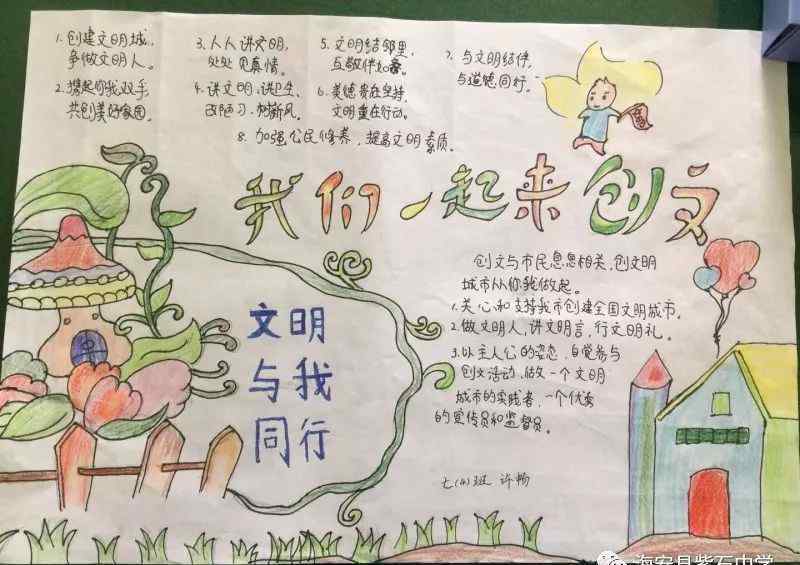 1. 创建文明城,
争做文明人。
2. 携起你我双手,
共创美好家园。
3. 人人讲文明,
处处见真情。
4. 讲文明、讲卫生、
改陋习、树新风。
5. 文明结邻里,
互敬伴如亲。
6. 美德贵在坚持,
文明重在行动。
7. 与文明结伴,
与道德同行。
8. 加强公民修养,提高文明素质。
我们一起来创文
文明
与我
同行
创文与市民息息相关,创文明
城市从你我做起。
1. 关心和支持我市创建全国文明城市。
2. 做文明人,讲文明言,行文明礼。
3. 以主人公的姿态,自觉参与
创文活动,做一个文明
城市的实践者,一个优秀
的宣传员和监督员。
七(4)班 许畅
海安县紫石中学